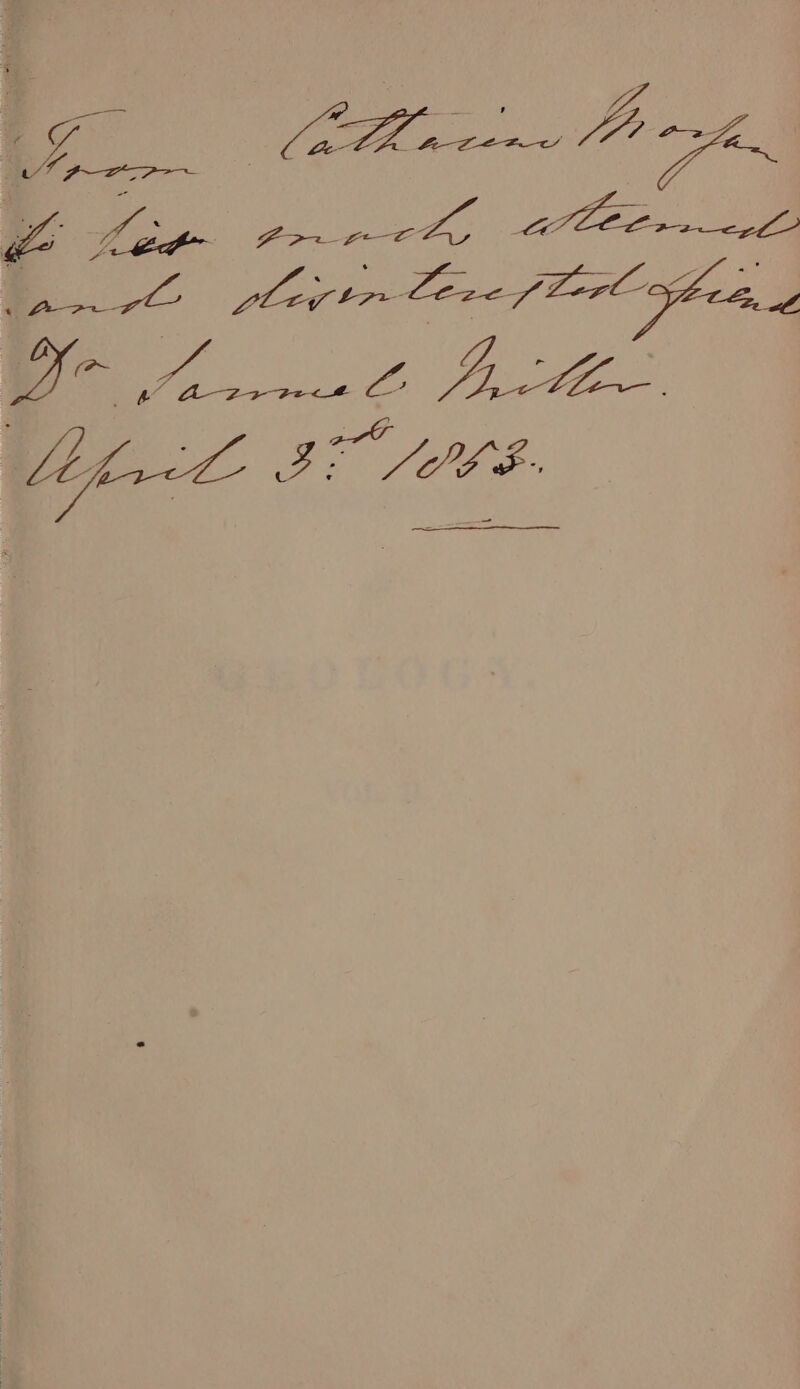 From Catharine Morgan
to her much esteemed
and disinterested friend
Dr Samuel Miller.
April 3rd 1853.
GEOLOGY.
VOL. II.